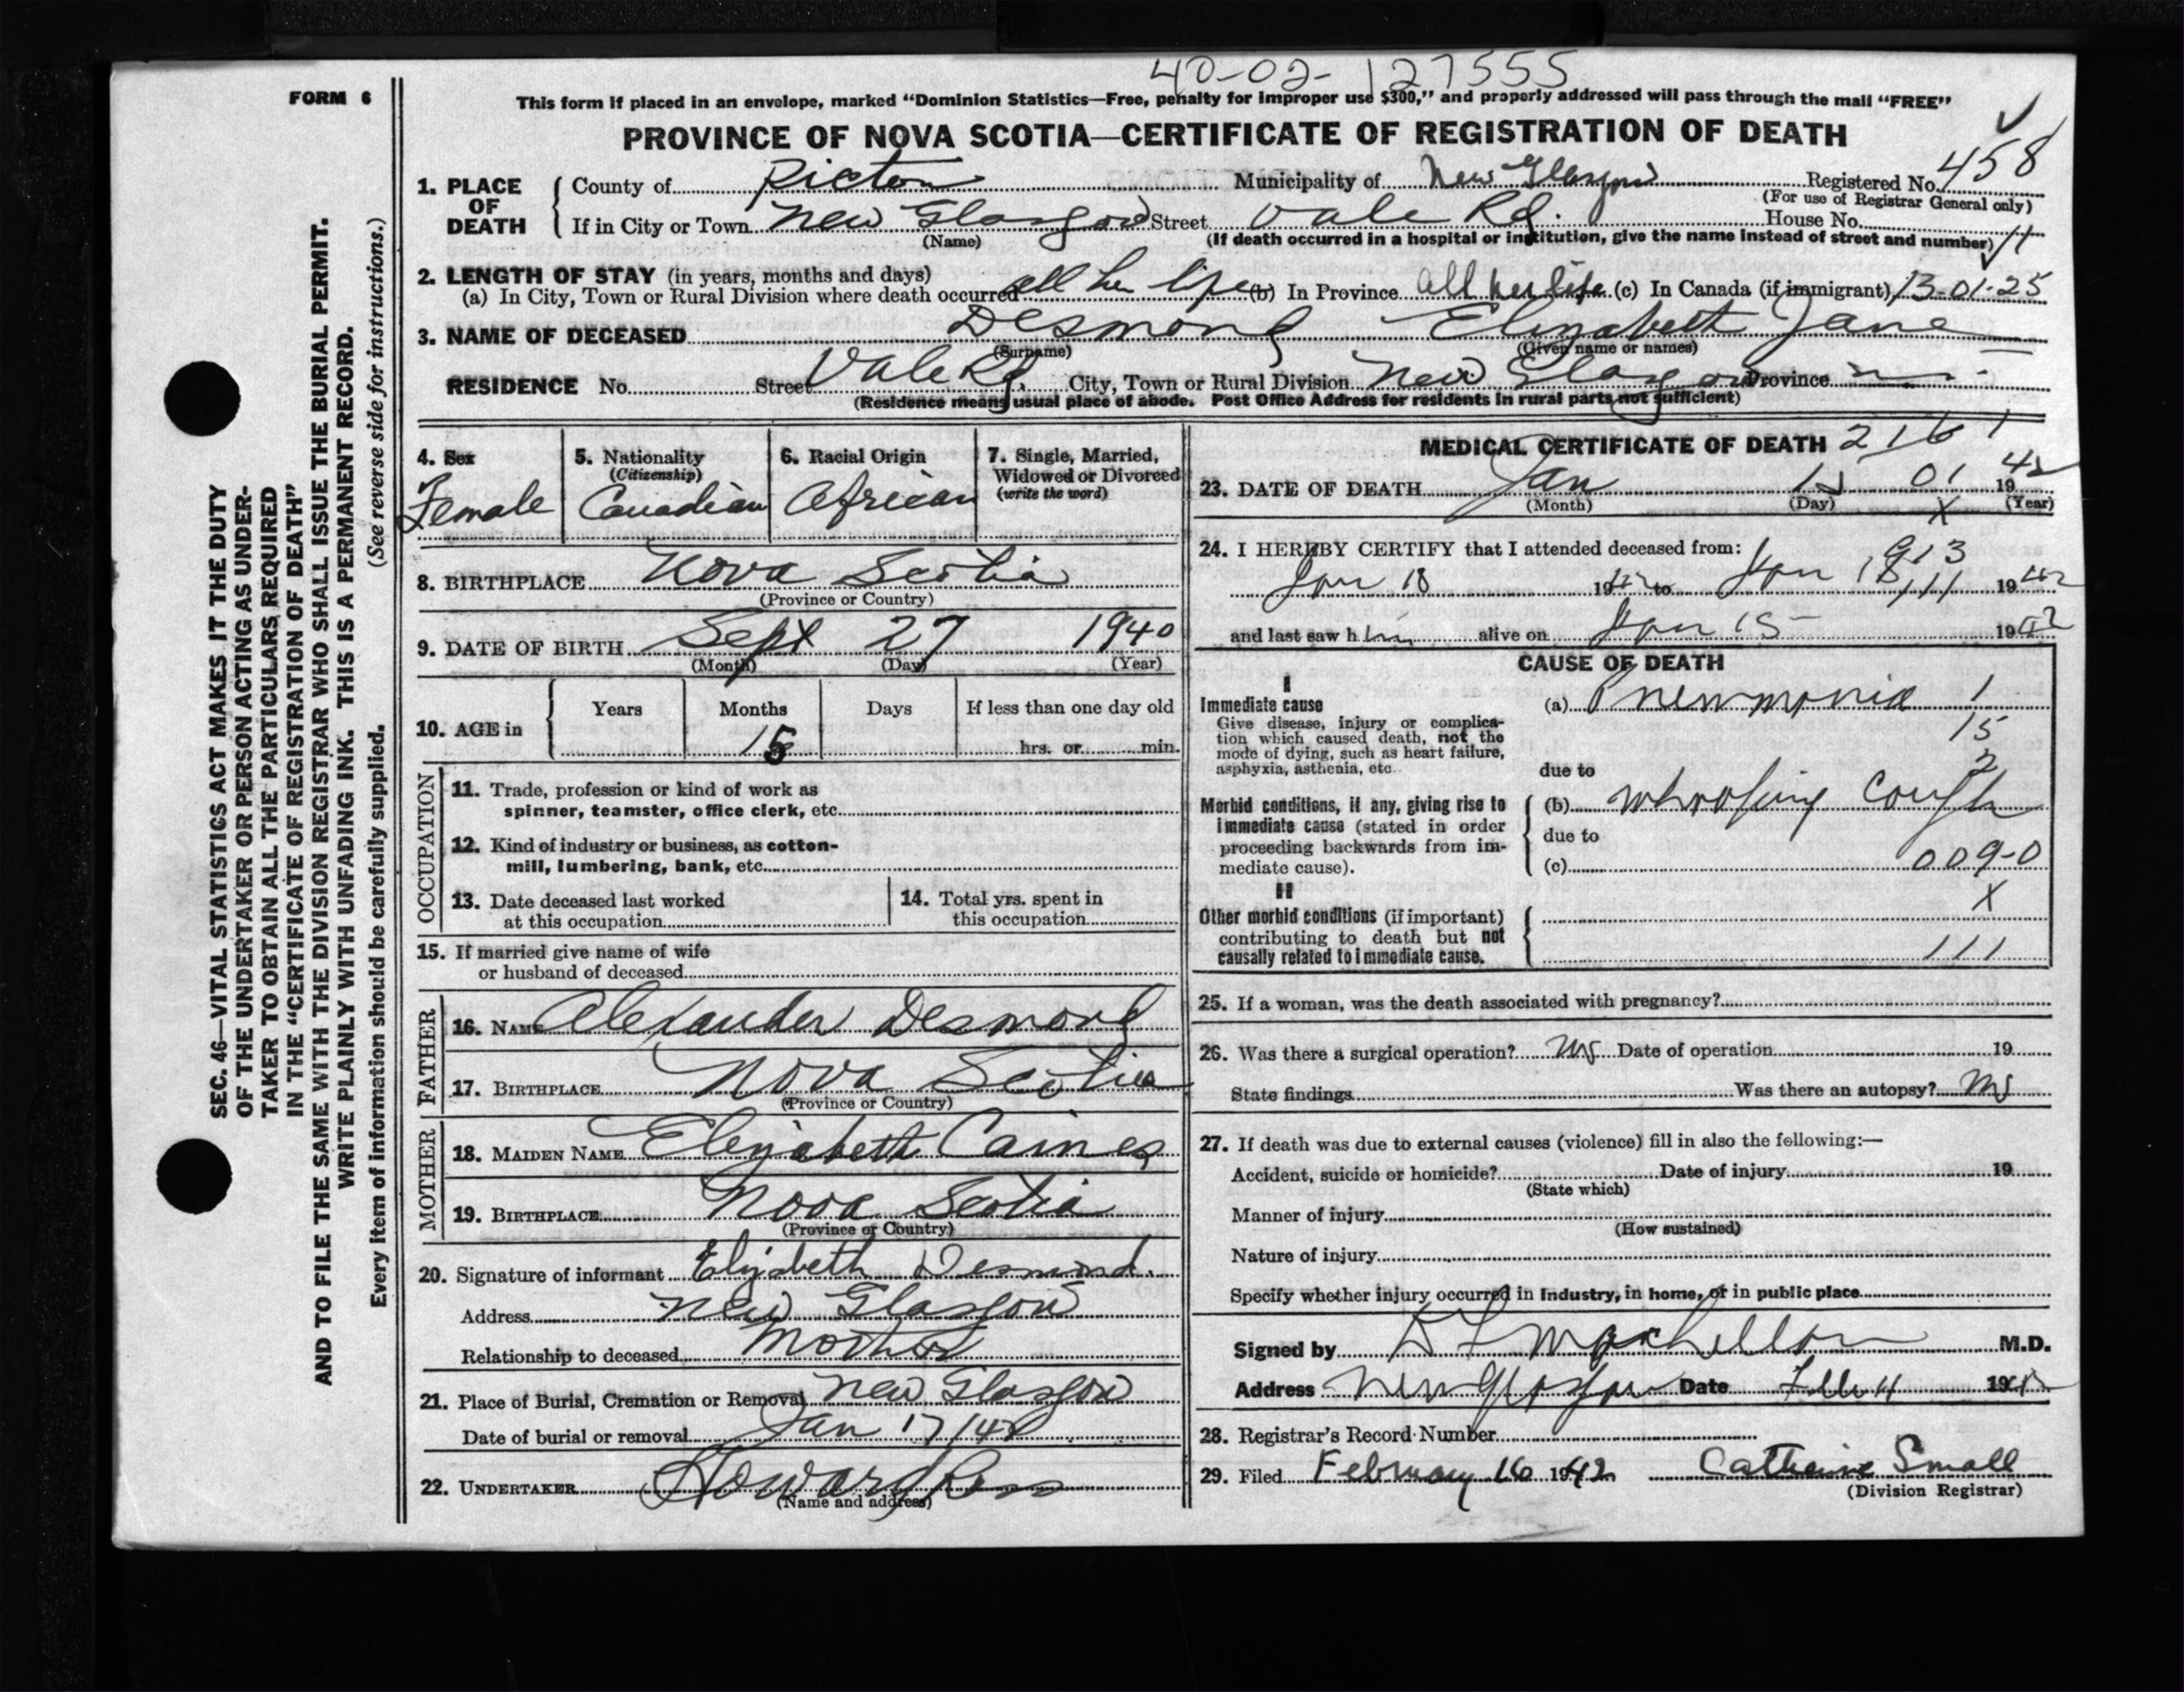 40-02-127555
FORM 6
This form if placed in an envelope, marked "Dominion Statistics—Free, penalty for improper use $300," and properly addressed will pass through the mail "FREE"
PROVINCE OF NOVA SCOTIA—CERTIFICATE OF REGISTRATION OF DEATH
1. PLACE OF DEATH County of Pictou Municipality of New Glasgow Registered No. 458
(For use of Registrar General only)
If in City or Town New Glasgow Street Vale Rd. House No.
(Name) (If death occurred in a hospital or institution, give the name instead of street and number)
2. LENGTH OF STAY (in years, months and days)
(a) In City, Town or Rural Division where death occurred all her life (b) In Province all her life (c) In Canada (if immigrant) 13-01-25
3. NAME OF DECEASED Desmond Elizabeth Jane
(Surname) (Given name or names)
RESIDENCE No. Street Vale Rd. City, Town or Rural Division New Glasgow Province
(Residence means usual place of abode. Post Office Address for residents in rural parts not sufficient)
4. Sex Female
5. Nationality (Citizenship) Canadian
6. Racial Origin African
7. Single, Married, Widowed or Divorced (write the word)
8. BIRTHPLACE Nova Scotia
(Province or Country)
9. DATE OF BIRTH Sept 27 1940
(Month) (Day) (Year)
10. AGE in Years Months Days If less than one day old
15 hrs. or min.
OCCUPATION
11. Trade, profession or kind of work as spinner, teamster, office clerk, etc.
12. Kind of industry or business, as cotton-mill, lumbering, bank, etc.
13. Date deceased last worked at this occupation
14. Total yrs. spent in this occupation
15. If married give name of wife or husband of deceased
FATHER
16. NAME Alexander Desmond
17. BIRTHPLACE Nova Scotia
(Province or Country)
MOTHER
18. MAIDEN NAME Elizabeth Caines
19. BIRTHPLACE Nova Scotia
(Province or Country)
20. Signature of informant Elizabeth Desmond.
Address New Glasgow
Relationship to deceased Mother
21. Place of Burial, Cremation or Removal New Glasgow
Date of burial or removal Jan 17/42
22. UNDERTAKER Howard Ross
(Name and address)
MEDICAL CERTIFICATE OF DEATH 2161
23. DATE OF DEATH Jan 15 01 1942
(Month) (Day) (Year)
X
24. I HEREBY CERTIFY that I attended deceased from: 913
Jan 1942 to Jan 15 111 1942
and last saw h alive on Jan 15 1942
CAUSE OF DEATH
I
Immediate cause (a) Pneumonia 1
Give disease, injury or complication which caused death, not the mode of dying, such as heart failure, asphyxia, asthenia, etc.
15
2
due to
Morbid conditions, if any, giving rise to immediate cause (stated in order proceeding backwards from immediate cause).
(b) Whooping Cough
due to
(c) 009-0
II X
Other morbid conditions (if important) contributing to death but not causally related to immediate cause.
111
25. If a woman, was the death associated with pregnancy?
26. Was there a surgical operation? No Date of operation 19
State findings Was there an autopsy? No
27. If death was due to external causes (violence) fill in also the following:—
Accident, suicide or homicide? Date of injury 19
(State which)
Manner of injury
(How sustained)
Nature of injury
Specify whether injury occurred in Industry, in home, or in public place
Signed by M.D.
Address New Glasgow Date Feb 11 1942
28. Registrar's Record Number
29. Filed February 16 1942 Catherine Small
(Division Registrar)
SEC. 46—VITAL STATISTICS ACT MAKES IT THE DUTY
OF THE UNDERTAKER OR PERSON ACTING AS UNDER-
TAKER TO OBTAIN ALL THE PARTICULARS REQUIRED
IN THE "CERTIFICATE OF REGISTRATION OF DEATH"
AND TO FILE THE SAME WITH THE DIVISION REGISTRAR WHO SHALL ISSUE THE BURIAL PERMIT.
WRITE PLAINLY WITH UNFADING INK. THIS IS A PERMANENT RECORD.
Every item of information should be carefully supplied. (See reverse side for instructions.)